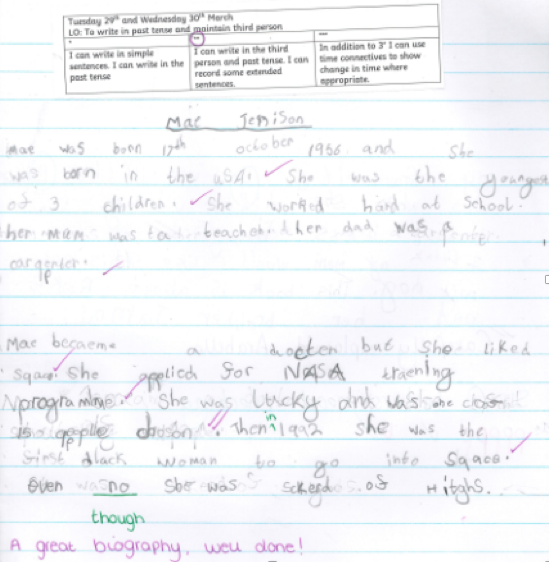 Tuesday 29th and Wednesday 30th March
LO: To write in past tense and maintain third person
* ** ***
I can write in simple sentences. I can write in the past tense
I can write in the third person and past tense. I can record some extended sentences.
In addition to 3* I can use time connectives to show change in time where appropriate.
Mae Jemison
Mae was born 17th october 1956 and she
was born in the USA. She was the youngest
of 3 children. She worked hard at School.
her mum was ta teacher. her dad was a
carpenter.
Mae became a docter but she liked
Space. She applied for NASA traening
programme. She was lucky and was one
15 people choson. Then in 1992 she was the
first black woman to go into Space.
even was no she was of Hitghs.
though
A great biography, well done!